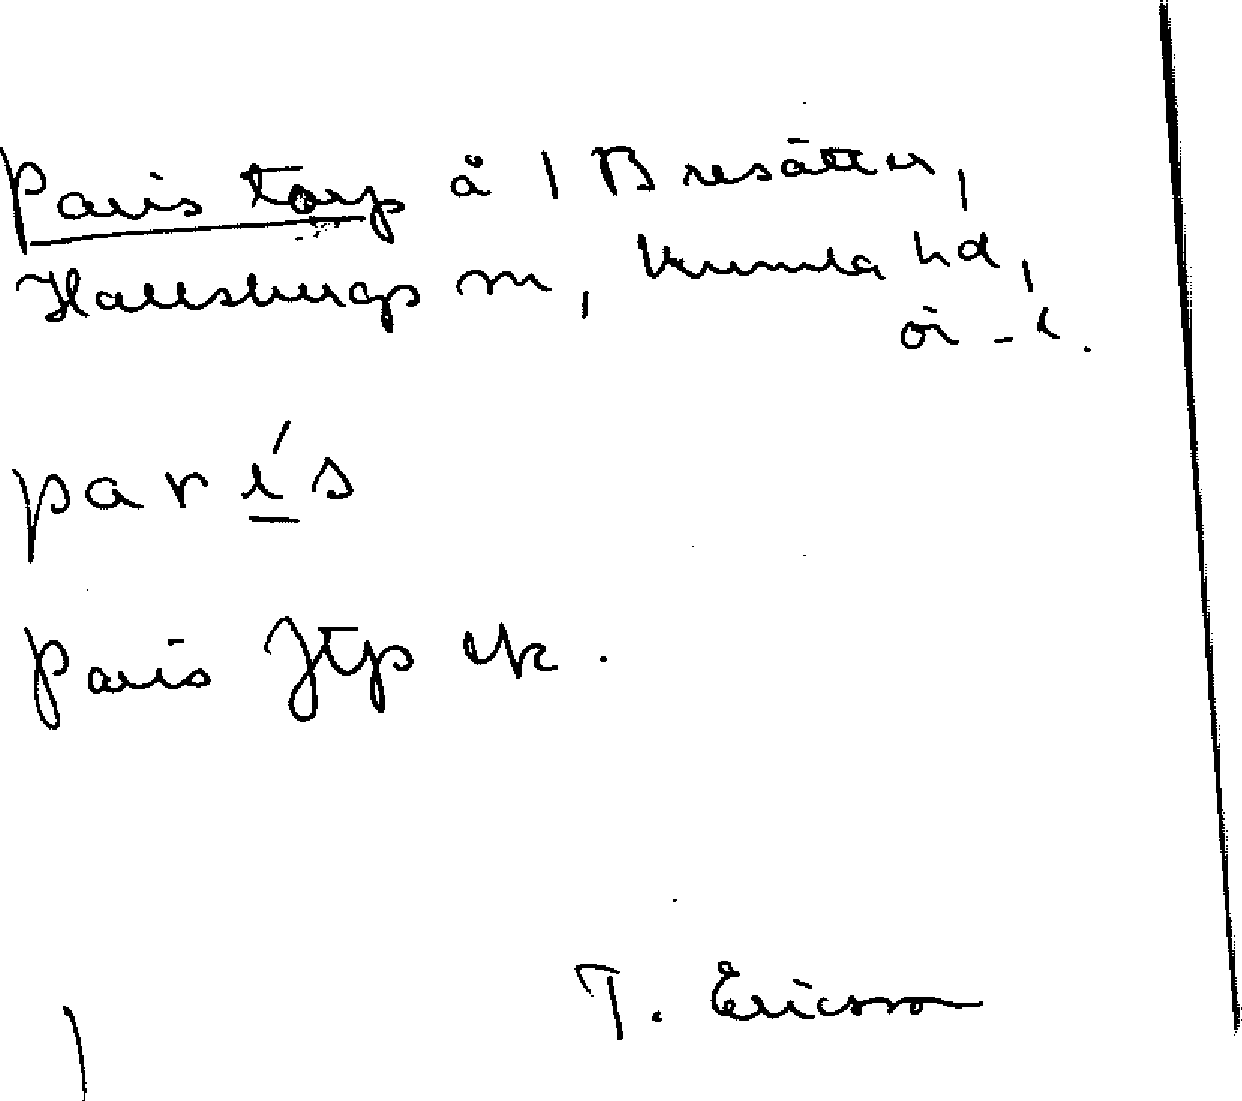 Paris torp å 1 Bresätter,
Hallsbergs sn, Kumla hd,
ör - l.
par í s
Paris Jtp ek.
T. Ericsson